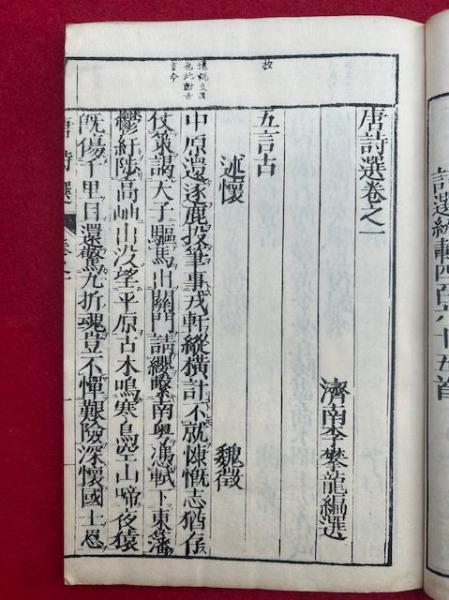 詩選總載四百六十五首
唐詩選卷之一
濟南李攀龍編選
五言古
述懷　魏徵
中原還逐鹿投筆事戎軒縱橫計不就慷慨志猶存
仗策謁天子驅馬出關門請纓繫南粤憑軾下東藩
鬱紆陟高岫出没望平原古木鳴寒鳥空山啼夜猿
既傷千里目還驚九折魂豈不憚艱險深懷國士恩
唐詩選　卷之一